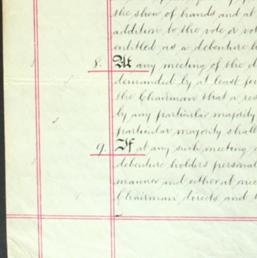 the show of hands and at
addition to the vote or vot
entitled as a debenture h
8. At any meeting of the d
demanded by at least fo
the Chairman that a res
by any particular majority
particular majority shall
9. If at any such meeting
debenture holders personal
manner and either at mee
Chairman directs and t